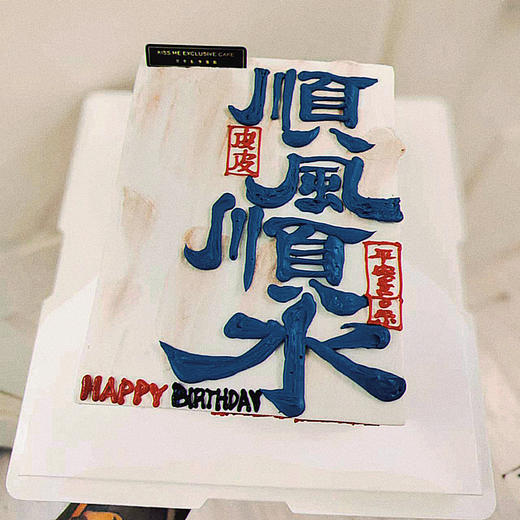 KISS ME EXCLUSIVE CAKE
順風
順水
皮皮
平安喜樂
HAPPY BIRTHDAY